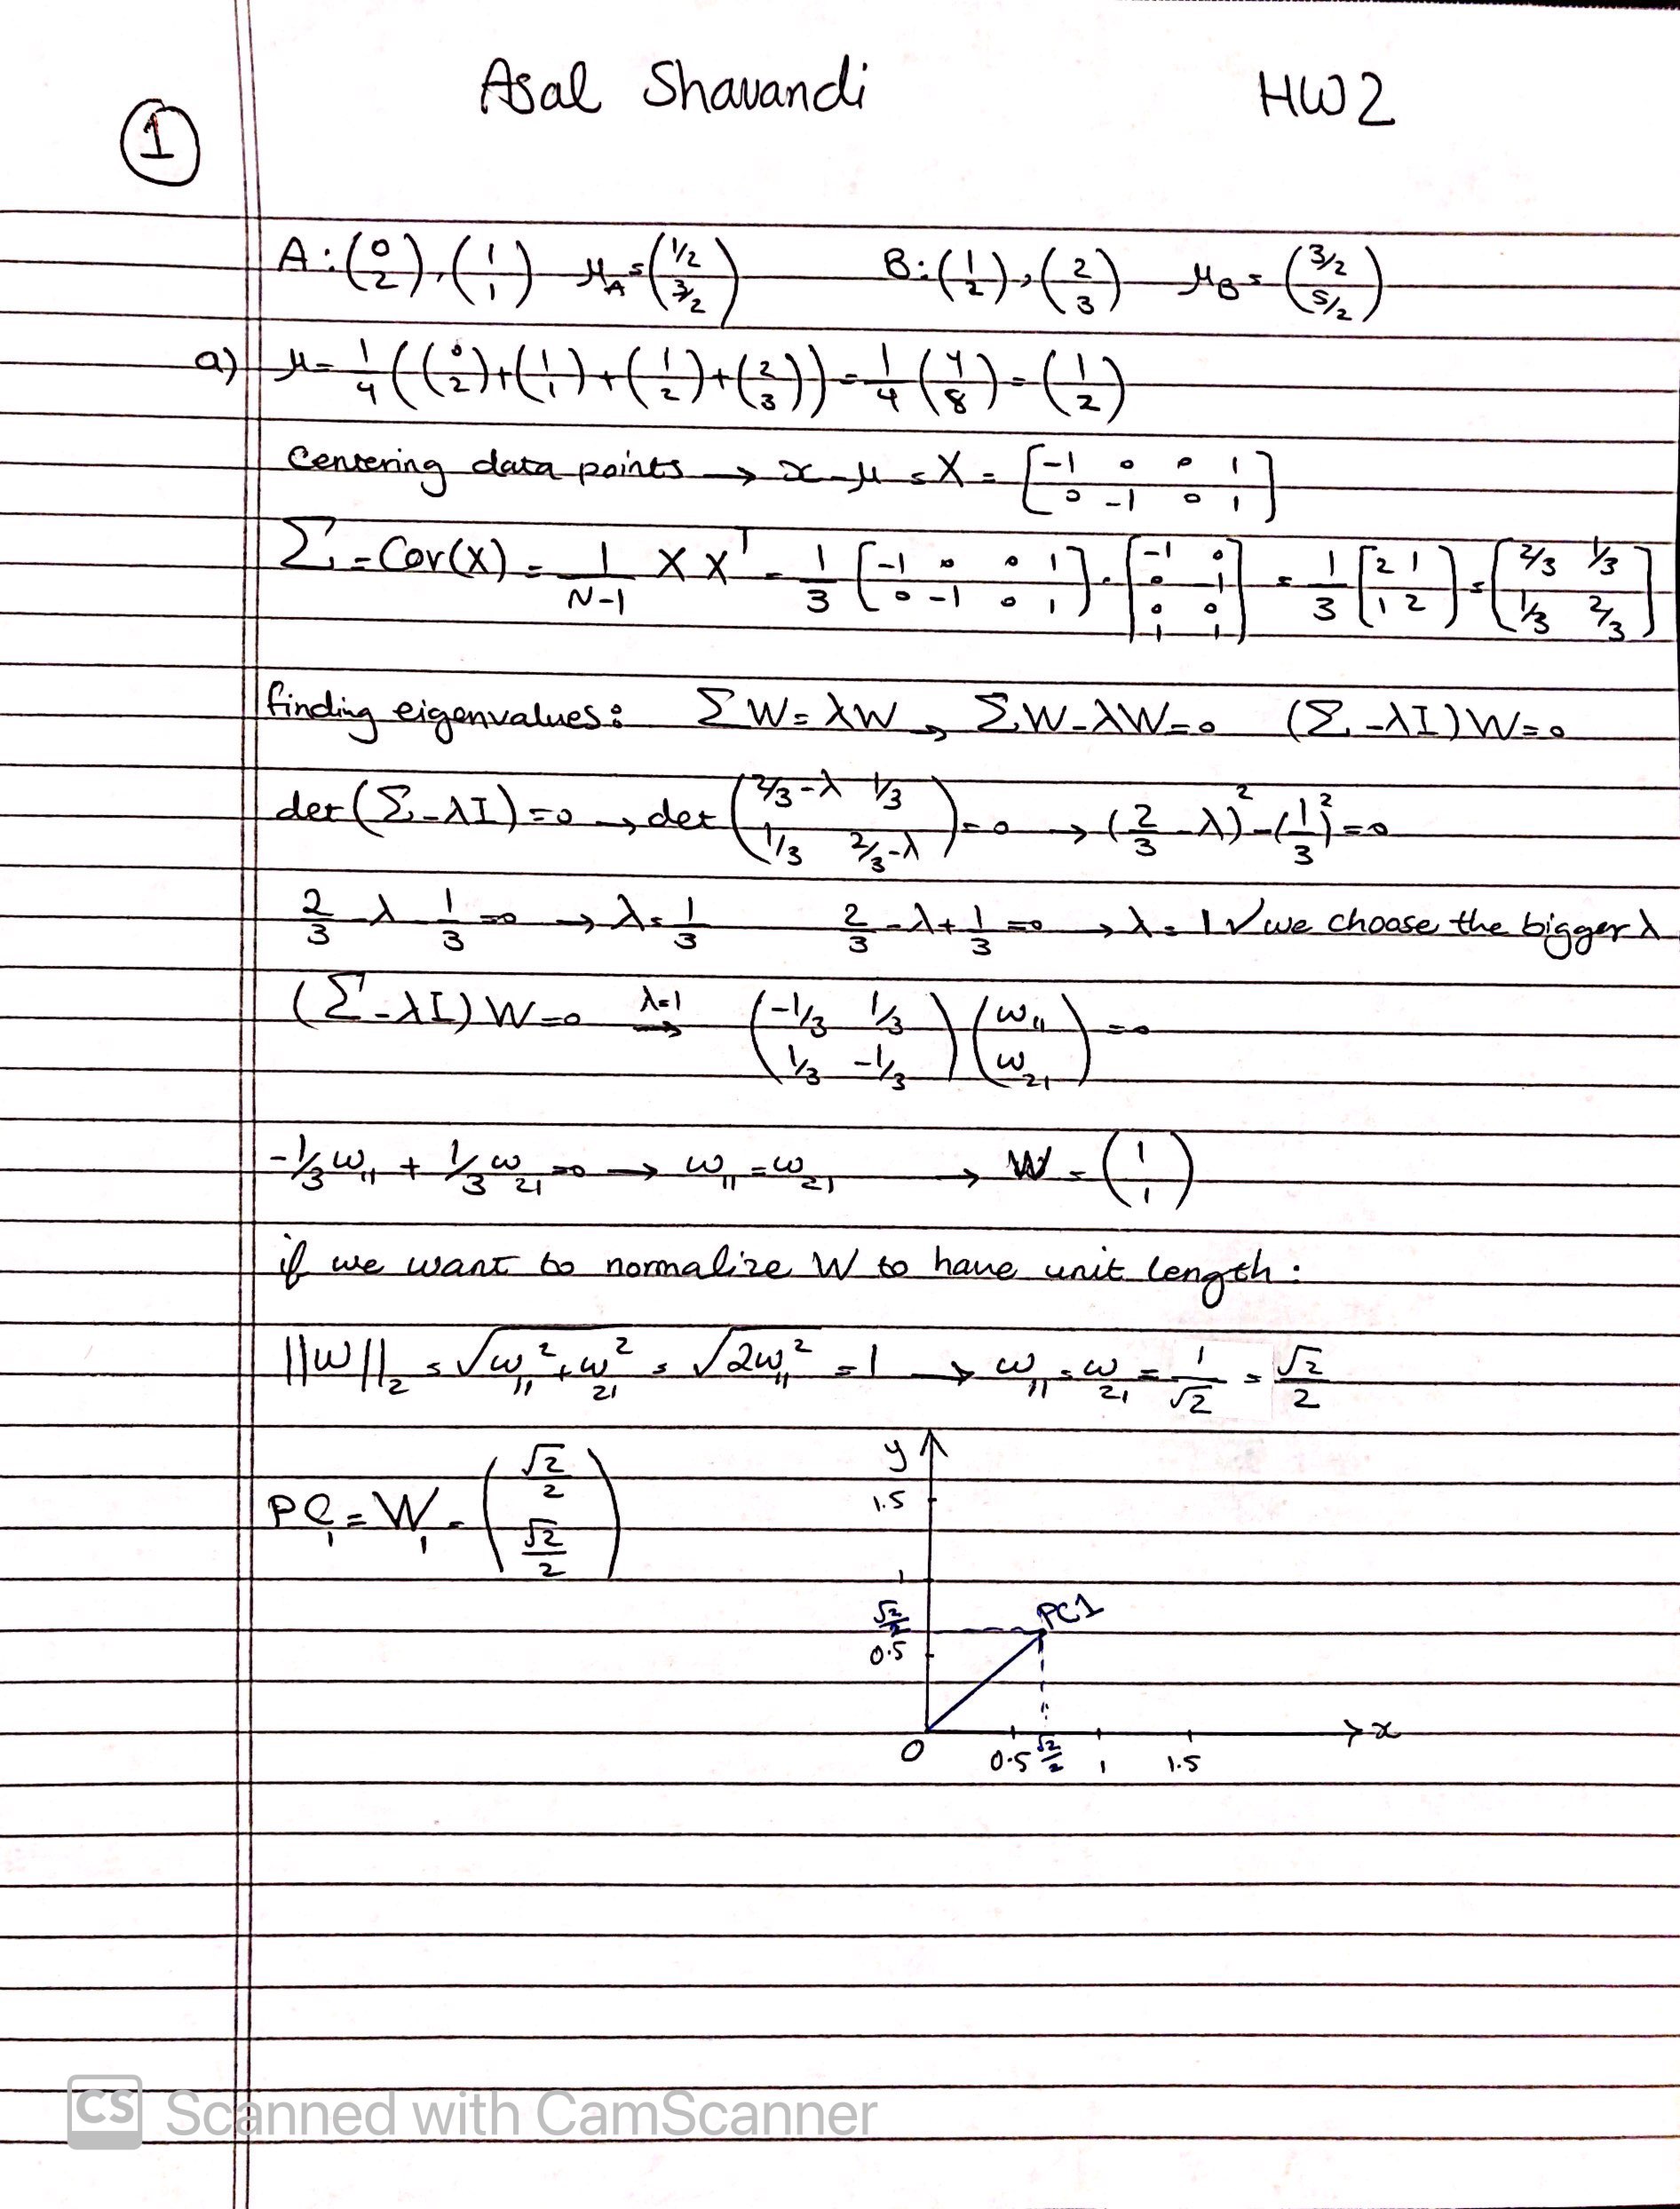 Asal Shavandi HW2
1
A: (0 2), (1 1) μ_A = (1/2 3/2) B: (1 2), (2 3) μ_B = (3/2 5/2)
a) μ = 1/4 ((0 2) + (1 1) + (1 2) + (2 3)) = 1/4 (4 8) = (1 2)
Centering data points → x - μ = X = [-1 0 0 1; 0 -1 0 1]
Σ = Cov(X) = 1/(N-1) X X^T = 1/3 [-1 0 0 1; 0 -1 0 1] · [-1 0; 0 -1; 0 0; 1 1] = 1/3 [2 1; 1 2] = [2/3 1/3; 1/3 2/3]
finding eigenvalues: ΣW = λW → ΣW - λW = 0 (Σ - λI) W = 0
det (Σ - λI) = 0 → det (2/3-λ 1/3; 1/3 2/3-λ) = 0 → (2/3 - λ)² - (1/3)² = 0
2/3 - λ - 1/3 = 0 → λ = 1/3 2/3 - λ + 1/3 = 0 → λ = 1 ✓ we choose the bigger λ
(Σ - λI) W = 0 λ=1 → (-1/3 1/3; 1/3 -1/3) (ω₁₁ ω₂₁) = 0
-1/3 ω₁₁ + 1/3 ω₂₁ = 0 → ω₁₁ = ω₂₁ → W = (1 1)
if we want to normalize W to have unit length:
||W||₂ = √(ω₁₁² + ω₂₁²) = √(2ω₁₁²) = 1 → ω₁₁ = ω₂₁ = 1/√2 = √2/2
PC₁ = W₁ = (√2/2 √2/2)
y
1.5
1
√2/2
PC1
0.5
x
0 0.5 √2/2 1 1.5
CS Scanned with CamScanner